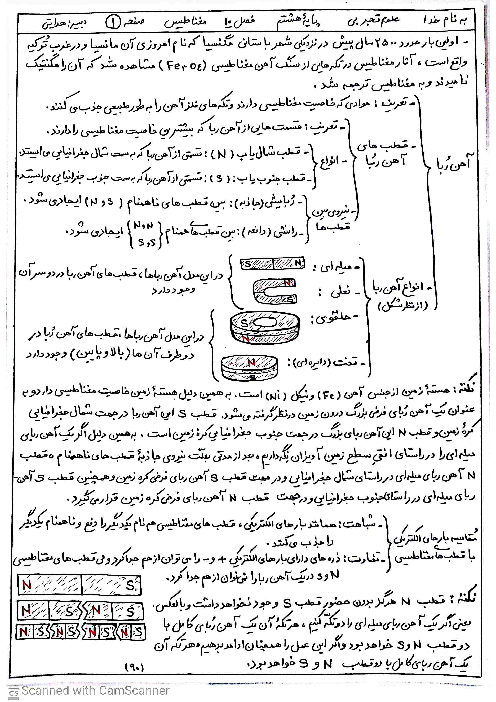 به نام خدا علوم تجربی پایهٔ هشتم فصل ۱۰ مغناطیس صفحه ۱ دبیر: هدایتی
- اولین بار حدود ۲۵۰۰ سال پیش در نزدیکی شهر باستانی مگنسیا که نام امروزی آن مانیسا و در غرب ترکیه
واقع است، آثار مغناطیس در تکه‌هایی از سنگ آهن مغناطیسی (Fe₃O₄) مشاهده شد که آن را مگنتیک
نامیدند و به مغناطیس ترجمه شد.
آهن رُبا
- تعریف: موادی که خاصیت مغناطیسی دارند و تکه‌های فلز آهن را به طور طبیعی جذب می‌کنند.
- قطب های آهن رُبا
- تعریف: قسمت‌هایی از آهن رُبا که بیشترین خاصیت مغناطیسی را دارند.
- انواع
- قطب شمال یاب (N): قسمتی از آهن رُبا که به سمت شمال جغرافیایی می‌ایستد.
- قطب جنوب یاب (S): قسمتی از آهن رُبا که به سمت جنوب جغرافیایی می‌ایستد.
- نیروی بین قطب‌ها
- رُبایشی (جاذبه): بین قطب های ناهمنام (N و S) ایجاد می شود.
- رانشی (دافعه): بین قطب‌های همنام (N و N / S و S) ایجاد می شود.
- انواع آهن رُبا (از نظر شکل)
- میله ای: S N
- نعلی: N S
در این مدل آهن رباها، قطب های آهن ربا در دو سر آن وجود دارد
- حلقوی: S N
- تخت (دایره ای): N
در این مدل آهن رباها، قطب های آهن رُبا در دو طرف آن‌ها (بالا و پایین) وجود دارد
نکته: هستهٔ زمین از جنس آهن (Fe) و نیکل (Ni) است. به همین دلیل هستهٔ زمین خاصیت مغناطیسی دارد و به
عنوان یک آهن رُبای فرضی بزرگ درون زمین در نظر گرفته می‌شود. قطب S این آهن ربا در جهت شمال جغرافیایی
کرهٔ زمین و قطب N این آهن ربای بزرگ در جهت جنوب جغرافیایی کرهٔ زمین است. به همین دلیل اگر یک آهن ربای
میله ای را در راستای افقی سطح زمین آویزان نگه داریم، بعد از مدتی به علت نیروی جاذبهٔ قطب های ناهمنام، قطب
N آهن ربای میله ای در راستای شمال جغرافیایی و در جهت قطب S آهن ربای فرضی کره زمین و همچنین قطب S آهن
ربای میله ای در راستای جنوب جغرافیایی و در جهت قطب N آهن ربای فرضی کره زمین قرار می‌گیرد.
مقایسه بارهای الکتریکی با قطب های مغناطیسی
- شباهت: همانند بارهای الکتریکی، قطب های مغناطیسی هم نام یکدیگر را دفع و ناهمنام یکدیگر
را جذب می‌کنند.
- تفاوت: ذره های دارای بارهای الکتریکی + و - را می توان از هم جدا کرد ولی قطب های مغناطیسی
N و S در یک آهن ربا را نمی‌توان از هم جدا کرد.
نکته: قطب N هرگز بدون حضور قطب S وجود نخواهد داشت و بالعکس.
یعنی اگر یک آهن ربای میله ای را دو تکه کنیم، هر تکهٔ آن یک آهن رُبای کامل با
دو قطب N و S خواهد بود و اگر این عمل را همچنان ادامه بدهیم، هر تکه آن
یک آهن ربای کامل با دو قطب N و S خواهد بود.
N S
N S N S
N S N S N S N S
(۹۰)
CS Scanned with CamScanner